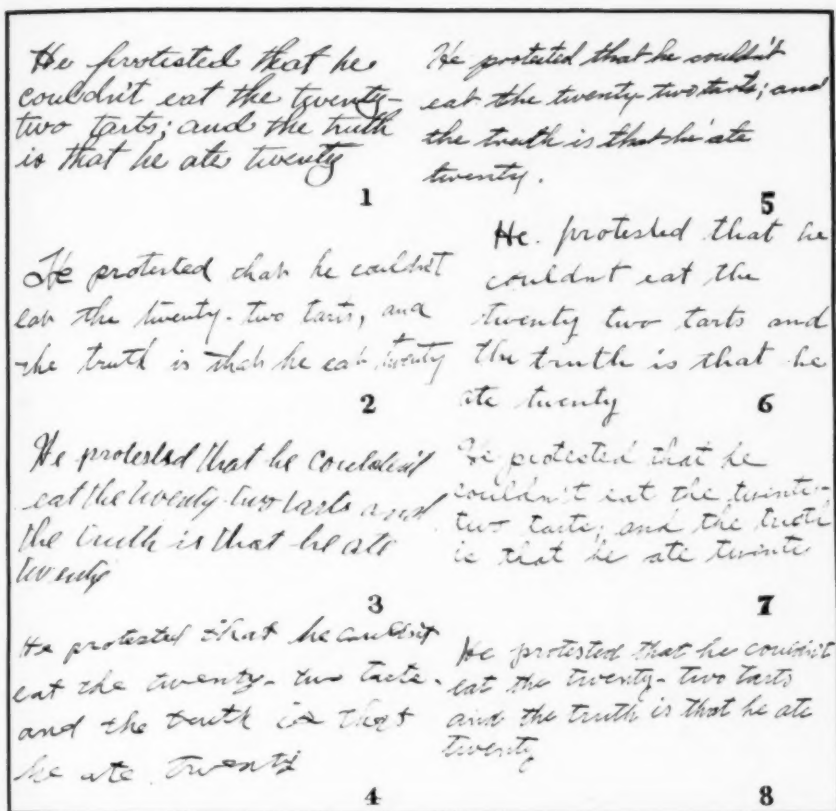 He protested that he
couldn't eat the twenty-
two tarts; and the truth
is that he ate twenty
1
He protested that he couldn't
eat the twenty-two tarts, and
the truth is that he eat twenty
2
He protested that he couldn't
eat the twenty-two tarts and
the truth is that he ate
twenty
3
He protested that he couldn't
eat the twenty-two tarts.
and the truth is that
he ate twenty
4
He protested that he couldn't
eat the twenty-two tarts; and
the truth is that he ate
twenty.
5
He. protested that he
couldn't eat the
twenty two tarts and
the truth is that he
ate twenty
6
He protested that he
couldn't eat the twinte-
two tarts; and the truth
is that he ate twinte
7
He protested that he couldn't
eat the twenty-two tarts
and the truth is that he ate
twenty
8